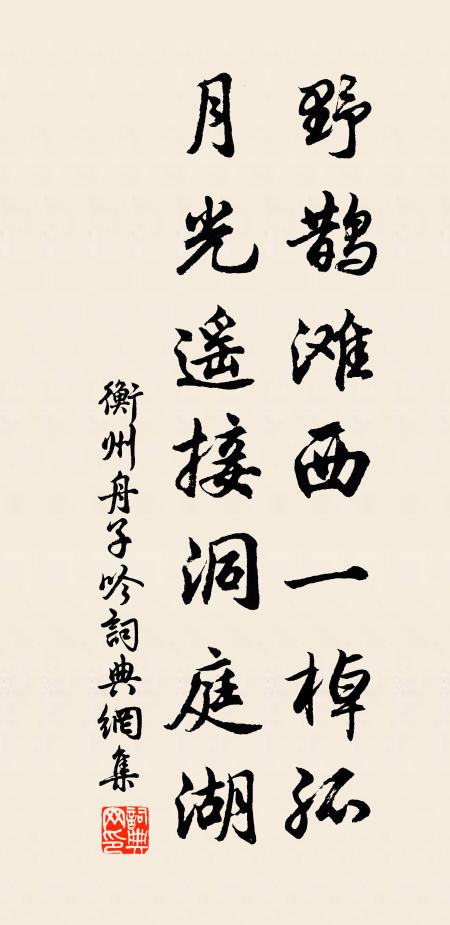 野鹊滩西一棹孤
月光遥接洞庭湖
衡州舟子吟詞典網集
詞典網印